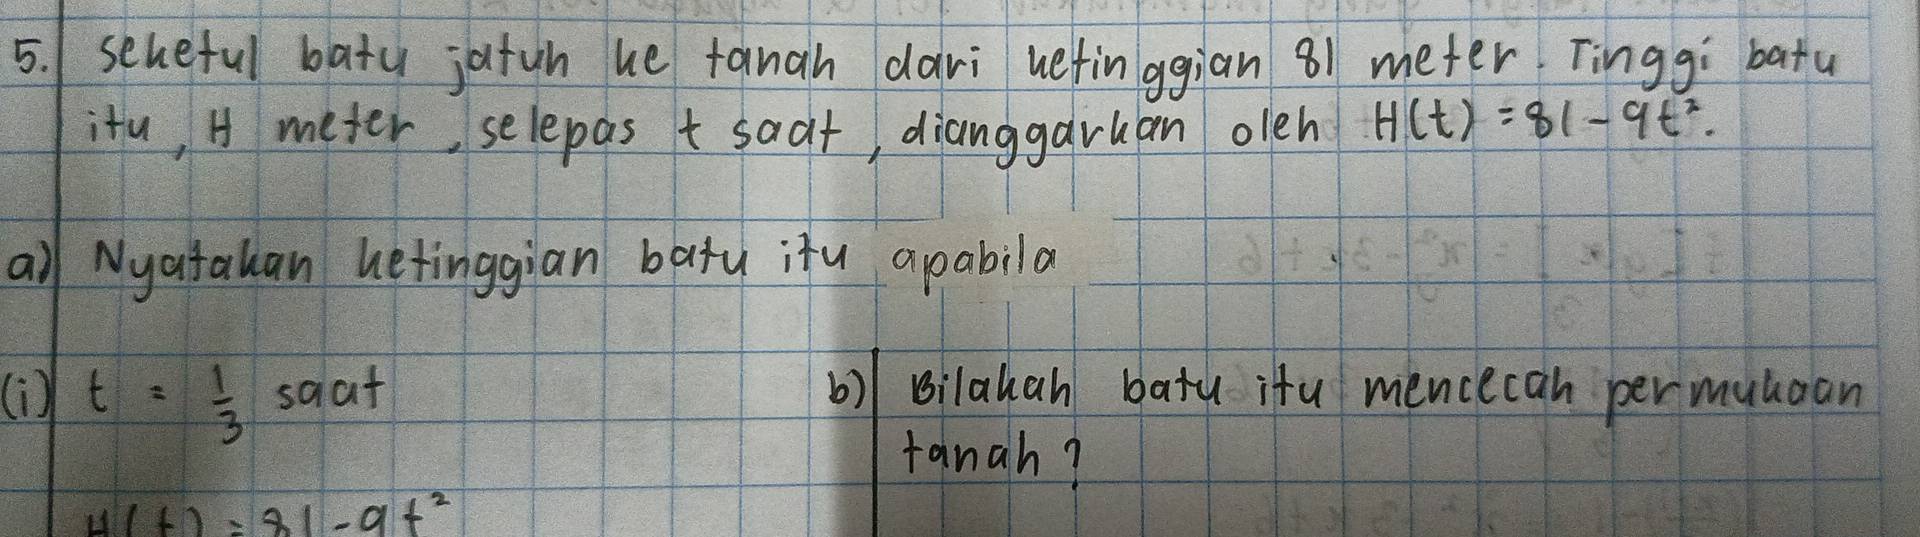 5. Seketul batu jatuh ke tanah dari ketinggian 81 meter. Tinggi batu
itu, H meter, selepas t saat, dianggarkan oleh H(t) = 81 - 9t².
a) Nyatakan ketinggian batu itu apabila
(i) t = 1/3 saat
b) Bilakah batu itu mencecah permukaan
tanah?
H(t) = 81 - 9t²